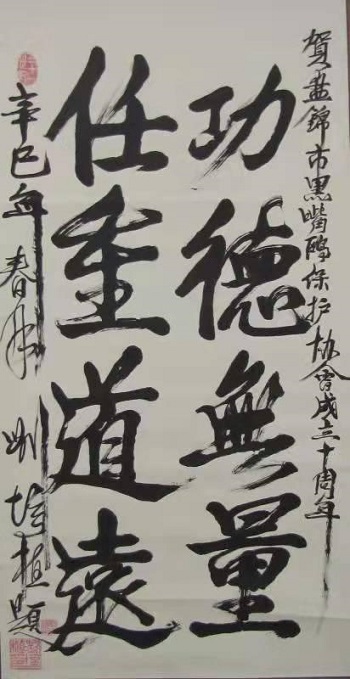 賀盘錦市黑嘴鸥保护协會成立十周年
功德無量
任重道遠
辛巳年 春月 刘培植題